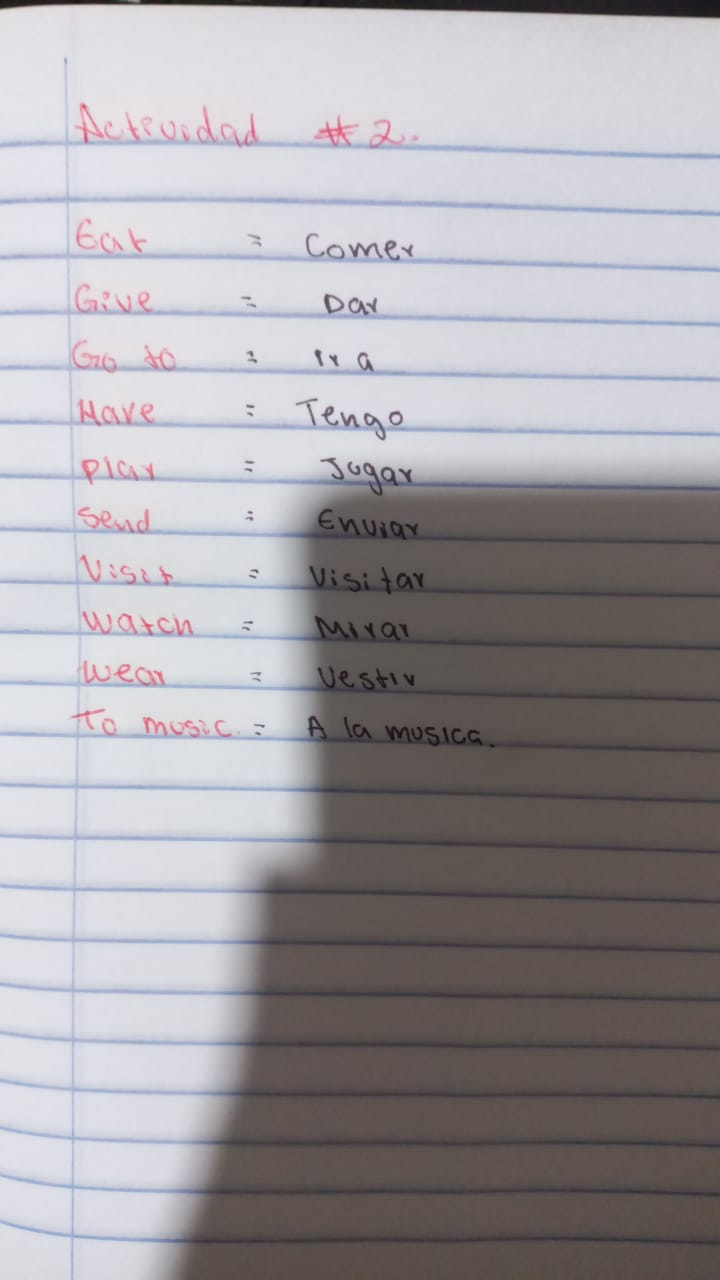 Actividad #2.
Eat = Comer
Give = Dar
Go to = Ir a
Have = Tengo
Play = Jugar
Send = Enviar
Visit = Visitar
Watch = Mirar
Wear = Vestir
To music. = A la musica.